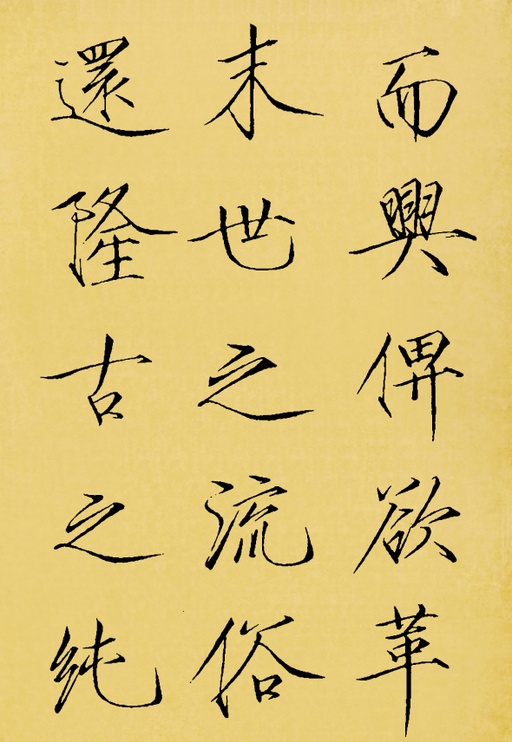 而興俾欲革
末世之流俗
還隆古之純